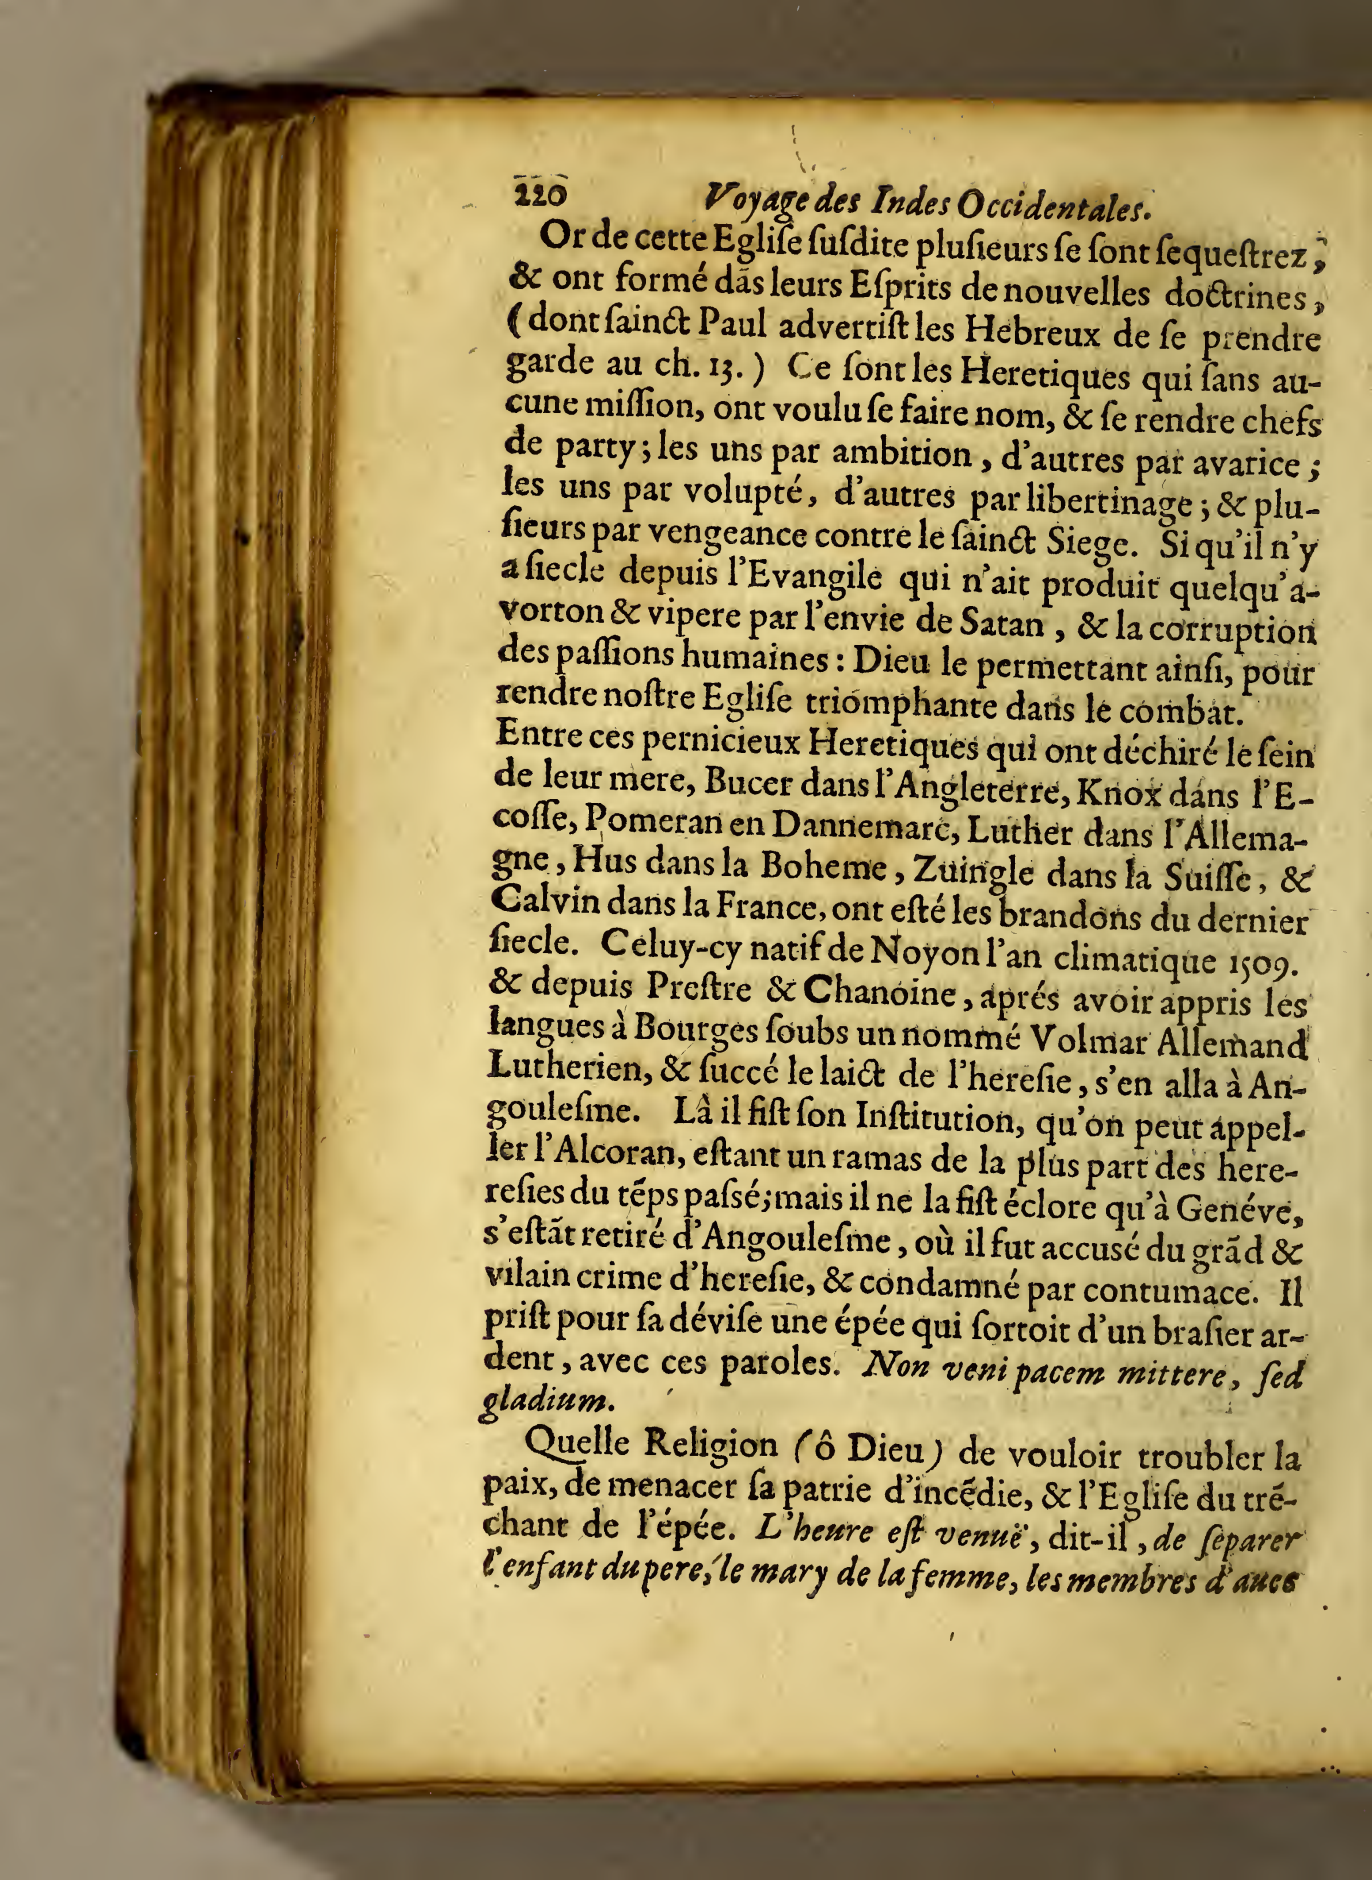 220 Voyage des Indes Occidentales.
Or de cette Egliſe ſuſdite pluſieurs ſe ſont ſequeſtrez,
& ont formé dãs leurs Eſprits de nouvelles doctrines,
(dont ſainct Paul advertiſt les Hebreux de ſe prendre
garde au ch. 13.) Ce ſont les Heretiques qui ſans au-
cune miſſion, ont voulu ſe faire nom, & ſe rendre chefs
de party; les uns par ambition, d'autres par avarice;
les uns par volupté, d'autres par libertinage; & plu-
ſieurs par vengeance contre le ſainct Siege. Si qu'il n'y
a ſiecle depuis l'Evangile qui n'ait produit quelqu'a-
vorton & vipere par l'envie de Satan, & la corruption
des paſſions humaines: Dieu le permettant ainſi, pour
rendre noſtre Egliſe triomphante dans le combat.
Entre ces pernicieux Heretiques qui ont déchiré le ſein
de leur mere, Bucer dans l'Angleterre, Knox dans l'E-
coſſe, Pomeran en Dannemarc, Luther dans l'Allema-
gne, Hus dans la Boheme, Zuingle dans la Suiſſe, &
Calvin dans la France, ont eſté les brandons du dernier
ſiecle. Celuy-cy natif de Noyon l'an climatique 1509.
& depuis Preſtre & Chanoine, aprés avoir appris les
langues à Bourges ſoubs un nommé Volmar Allemand
Lutherien, & ſuccé le laict de l'hereſie, s'en alla à An-
gouleſme. Là il fiſt ſon Inſtitution, qu'on peut appel-
ler l'Alcoran, eſtant un ramas de la plus part des here-
reſies du tẽps paſsé; mais il ne la fiſt éclore qu'à Genéve,
s'eſtãt retiré d'Angouleſme, où il fut accusé du grãd &
vilain crime d'hereſie, & condamné par contumace. Il
priſt pour ſa déviſe une épée qui ſortoit d'un braſier ar-
dent, avec ces paroles. Non veni pacem mittere, ſed
gladium.
Quelle Religion (ô Dieu) de vouloir troubler la
paix, de menacer ſa patrie d'incẽdie, & l'Egliſe du trẽ-
chant de l'épée. L'heure eſt venuë, dit-il, de ſeparer
l'enfant du pere, le mary de la femme, les membres d'avec